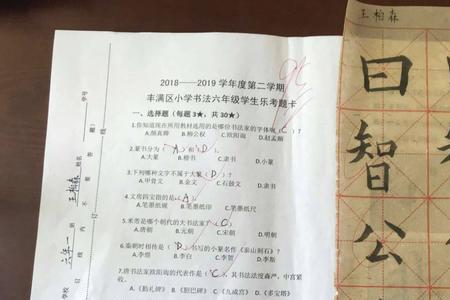 王柏森
2018——2019 学年度第二学期
丰满区小学书法六年级学生乐考题卡
一、选择题（每题 3★，共 30★）
1.你知道现在所用教材选用的是哪位书法家的字体吗（C）？
A.颜真卿 B.柳公权 C.欧阳询 D.赵孟頫
2.篆书分为（A）和（D）。
A.大篆 B.楷书 C.隶书 D.小篆
3.下列哪种文字不属于大篆（D）？
A.甲骨文 B.金文 C.石鼓文 D.隶书
4.文房四宝指的是（A）
A.笔墨纸砚 B.笔墨纸印 C.笔墨纸尺
5.米芾是哪个朝代的大书法家？（C）
A.唐朝 B.元朝 C.宋朝 D.明朝
6.秦朝时相待是（D）书写的小篆名作《泰山刻石》？
A.李煜 B.李白 C.李贺 D.李斯
7.唐书法家欧阳询的代表作是（C），其书法法度森严，中宫紧收。
A.《勤礼碑》 B.《胆巴碑》 C.《九成宫》 D.《多宝塔》
学号
姓名 王柏森
六年一
学校
装
订
线
内
不
曰
智
公